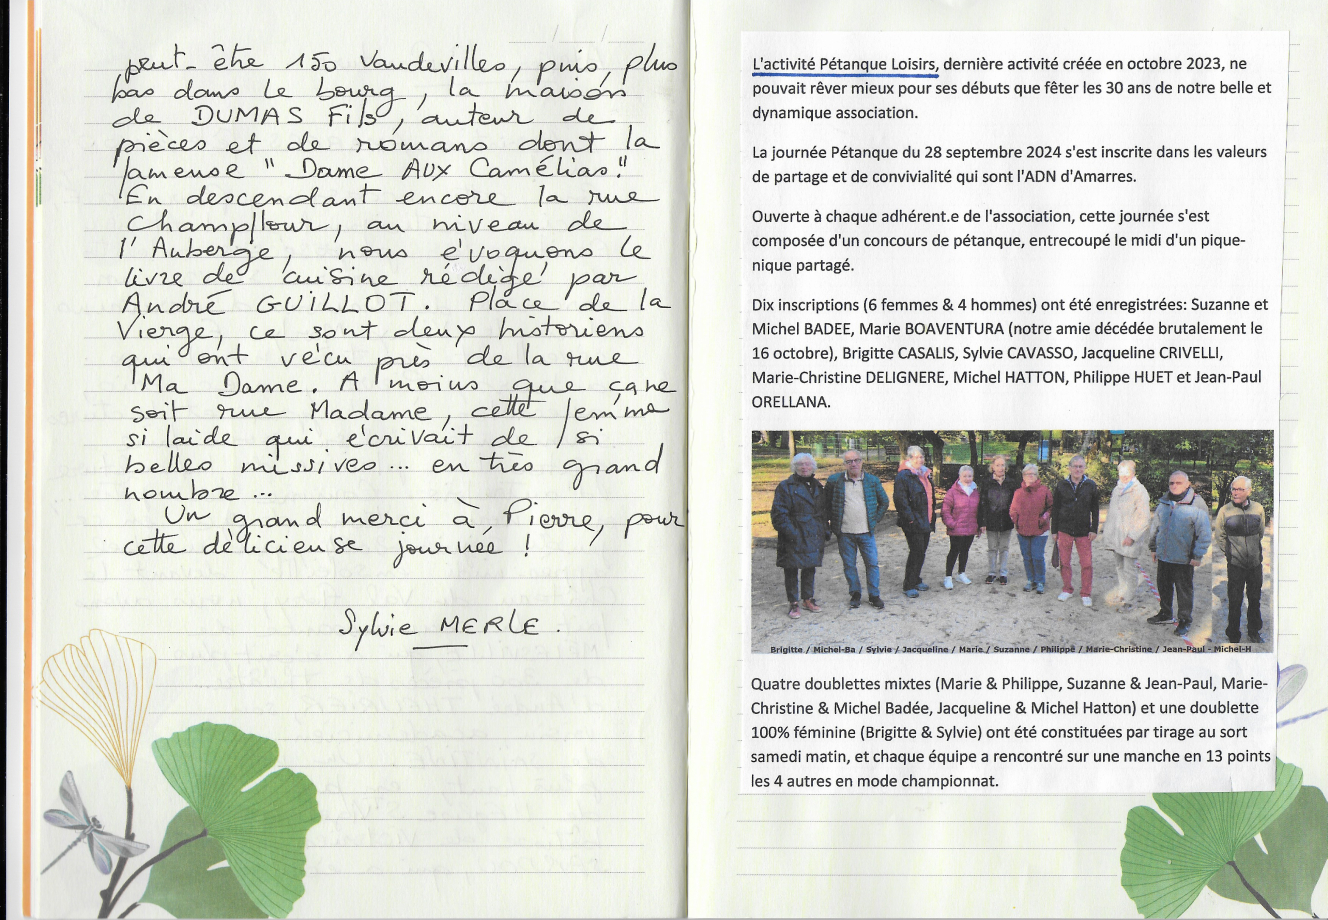 peut-être 150 Vaudevilles, puis, plus
bas dans le bourg, la maison
de DUMAS Fils, auteur de
pièces et de romans dont la
fameuse "Dame AUX Camélias."
En descendant encore la rue
Champflour, au niveau de
l'Auberge, nous évoquons le
livre de cuisine rédigé par
André GUILLOT. Place de la
Vierge, ce sont deux historiens
qui ont vécu près de la rue
Ma Dame. A moins que ça ne
soit rue Madame, cette femme
si laide qui écrivait de si
belles missives... en très grand
nombre...
Un grand merci à Pierre, pour
cette délicieuse journée !
Sylvie MERLE.
L'activité Pétanque Loisirs, dernière activité créée en octobre 2023, ne
pouvait rêver mieux pour ses débuts que fêter les 30 ans de notre belle et
dynamique association.
La journée Pétanque du 28 septembre 2024 s'est inscrite dans les valeurs
de partage et de convivialité qui sont l'ADN d'Amarres.
Ouverte à chaque adhérent.e de l'association, cette journée s'est
composée d'un concours de pétanque, entrecoupé le midi d'un pique-
nique partagé.
Dix inscriptions (6 femmes & 4 hommes) ont été enregistrées: Suzanne et
Michel BADEE, Marie BOAVENTURA (notre amie décédée brutalement le
16 octobre), Brigitte CASALIS, Sylvie CAVASSO, Jacqueline CRIVELLI,
Marie-Christine DELIGNERE, Michel HATTON, Philippe HUET et Jean-Paul
ORELLANA.
Brigitte / Michel-Ba / Sylvie / Jacqueline / Marie / Suzanne / Philippe / Marie-Christine / Jean-Paul - Michel-H
Quatre doublettes mixtes (Marie & Philippe, Suzanne & Jean-Paul, Marie-
Christine & Michel Badée, Jacqueline & Michel Hatton) et une doublette
100% féminine (Brigitte & Sylvie) ont été constituées par tirage au sort
samedi matin, et chaque équipe a rencontré sur une manche en 13 points
les 4 autres en mode championnat.